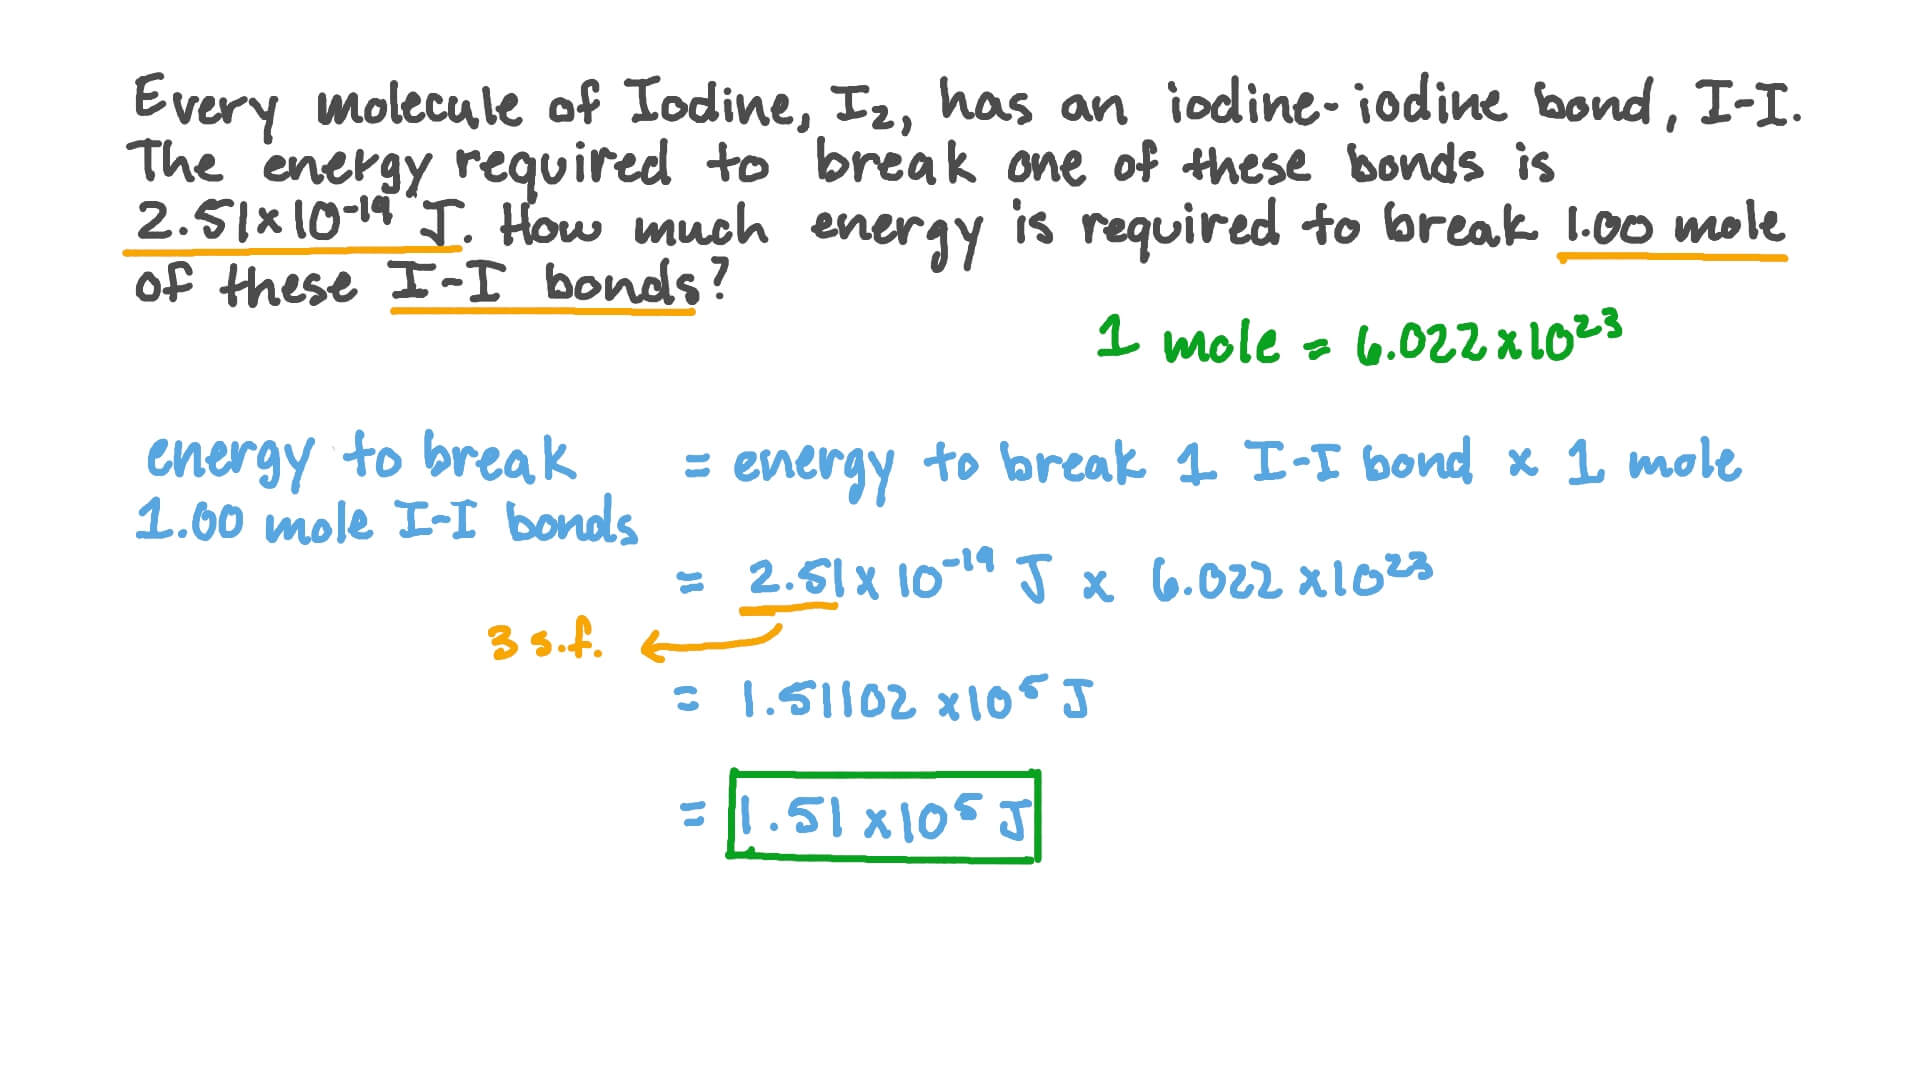 Every molecule of Iodine, I₂, has an iodine-iodine bond, I-I.
The energy required to break one of these bonds is
2.51x10⁻¹⁹ J. How much energy is required to break 1.00 mole
of these I-I bonds?
1 mole = 6.022x10²³
energy to break = energy to break 1 I-I bond x 1 mole
1.00 mole I-I bonds
= 2.51x10⁻¹⁹ J x 6.022x10²³
3 s.f.
= 1.51102x10⁵ J
= 1.51x10⁵ J